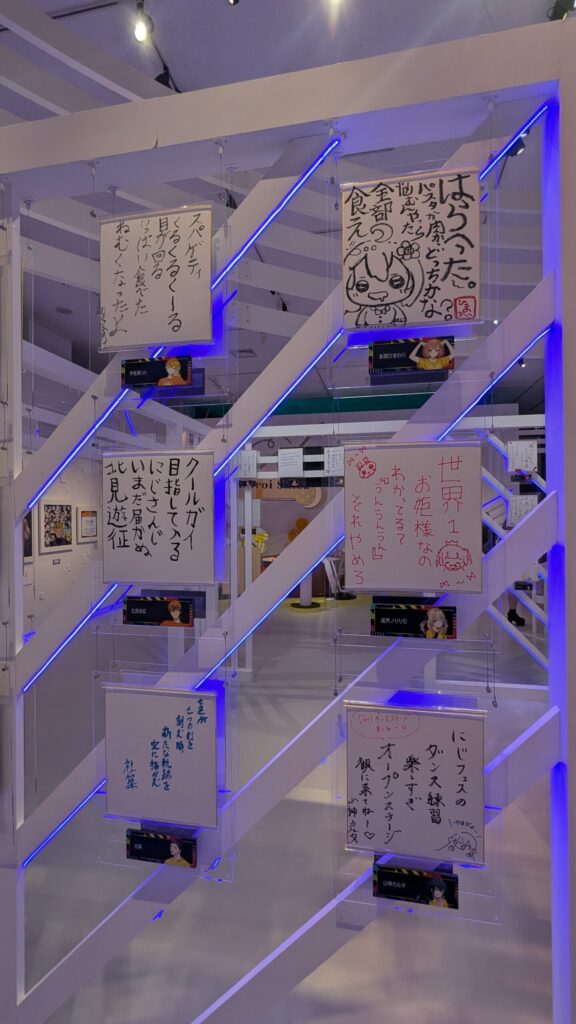 スパゲティ
くるくるくーる
目が回る
いっぱい食べた
ねむくなったよ
宇佐美リト
はらへった。
パスタか肉かどっちかな？
全部
食え
本間ひまわり
クールガイ
目指して入る
にじさんじ
いまだ届かぬ
北見遊征
北見遊征
世界1
お姫様なの
わかってる？
「うんうんうん」
それやめろ
魔界ノりりむ
刻む時
新たな軌跡を
空に描かん
社築
社築
にじフェスの
ダンス練習
楽しすぎ
オープンステージ
観に来てねー♡
山神カルタ
山神カルタ